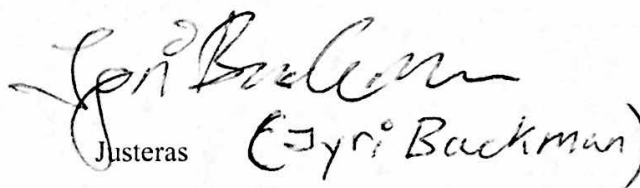 Jyri Backman
Justeras (Jyri Backman)